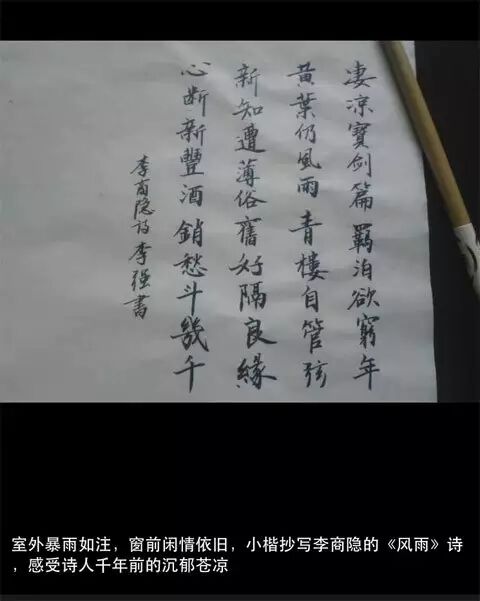 凄凉寶劍篇羇泊欲窮年
黄葉仍風雨青樓自管弦
新知遭薄俗舊好隔良緣
心断新豐酒銷愁斗幾千
李商隐诗李强書
室外暴雨如注，窗前闲情依旧，小楷抄写李商隐的《风雨》诗
，感受诗人千年前的沉郁苍凉